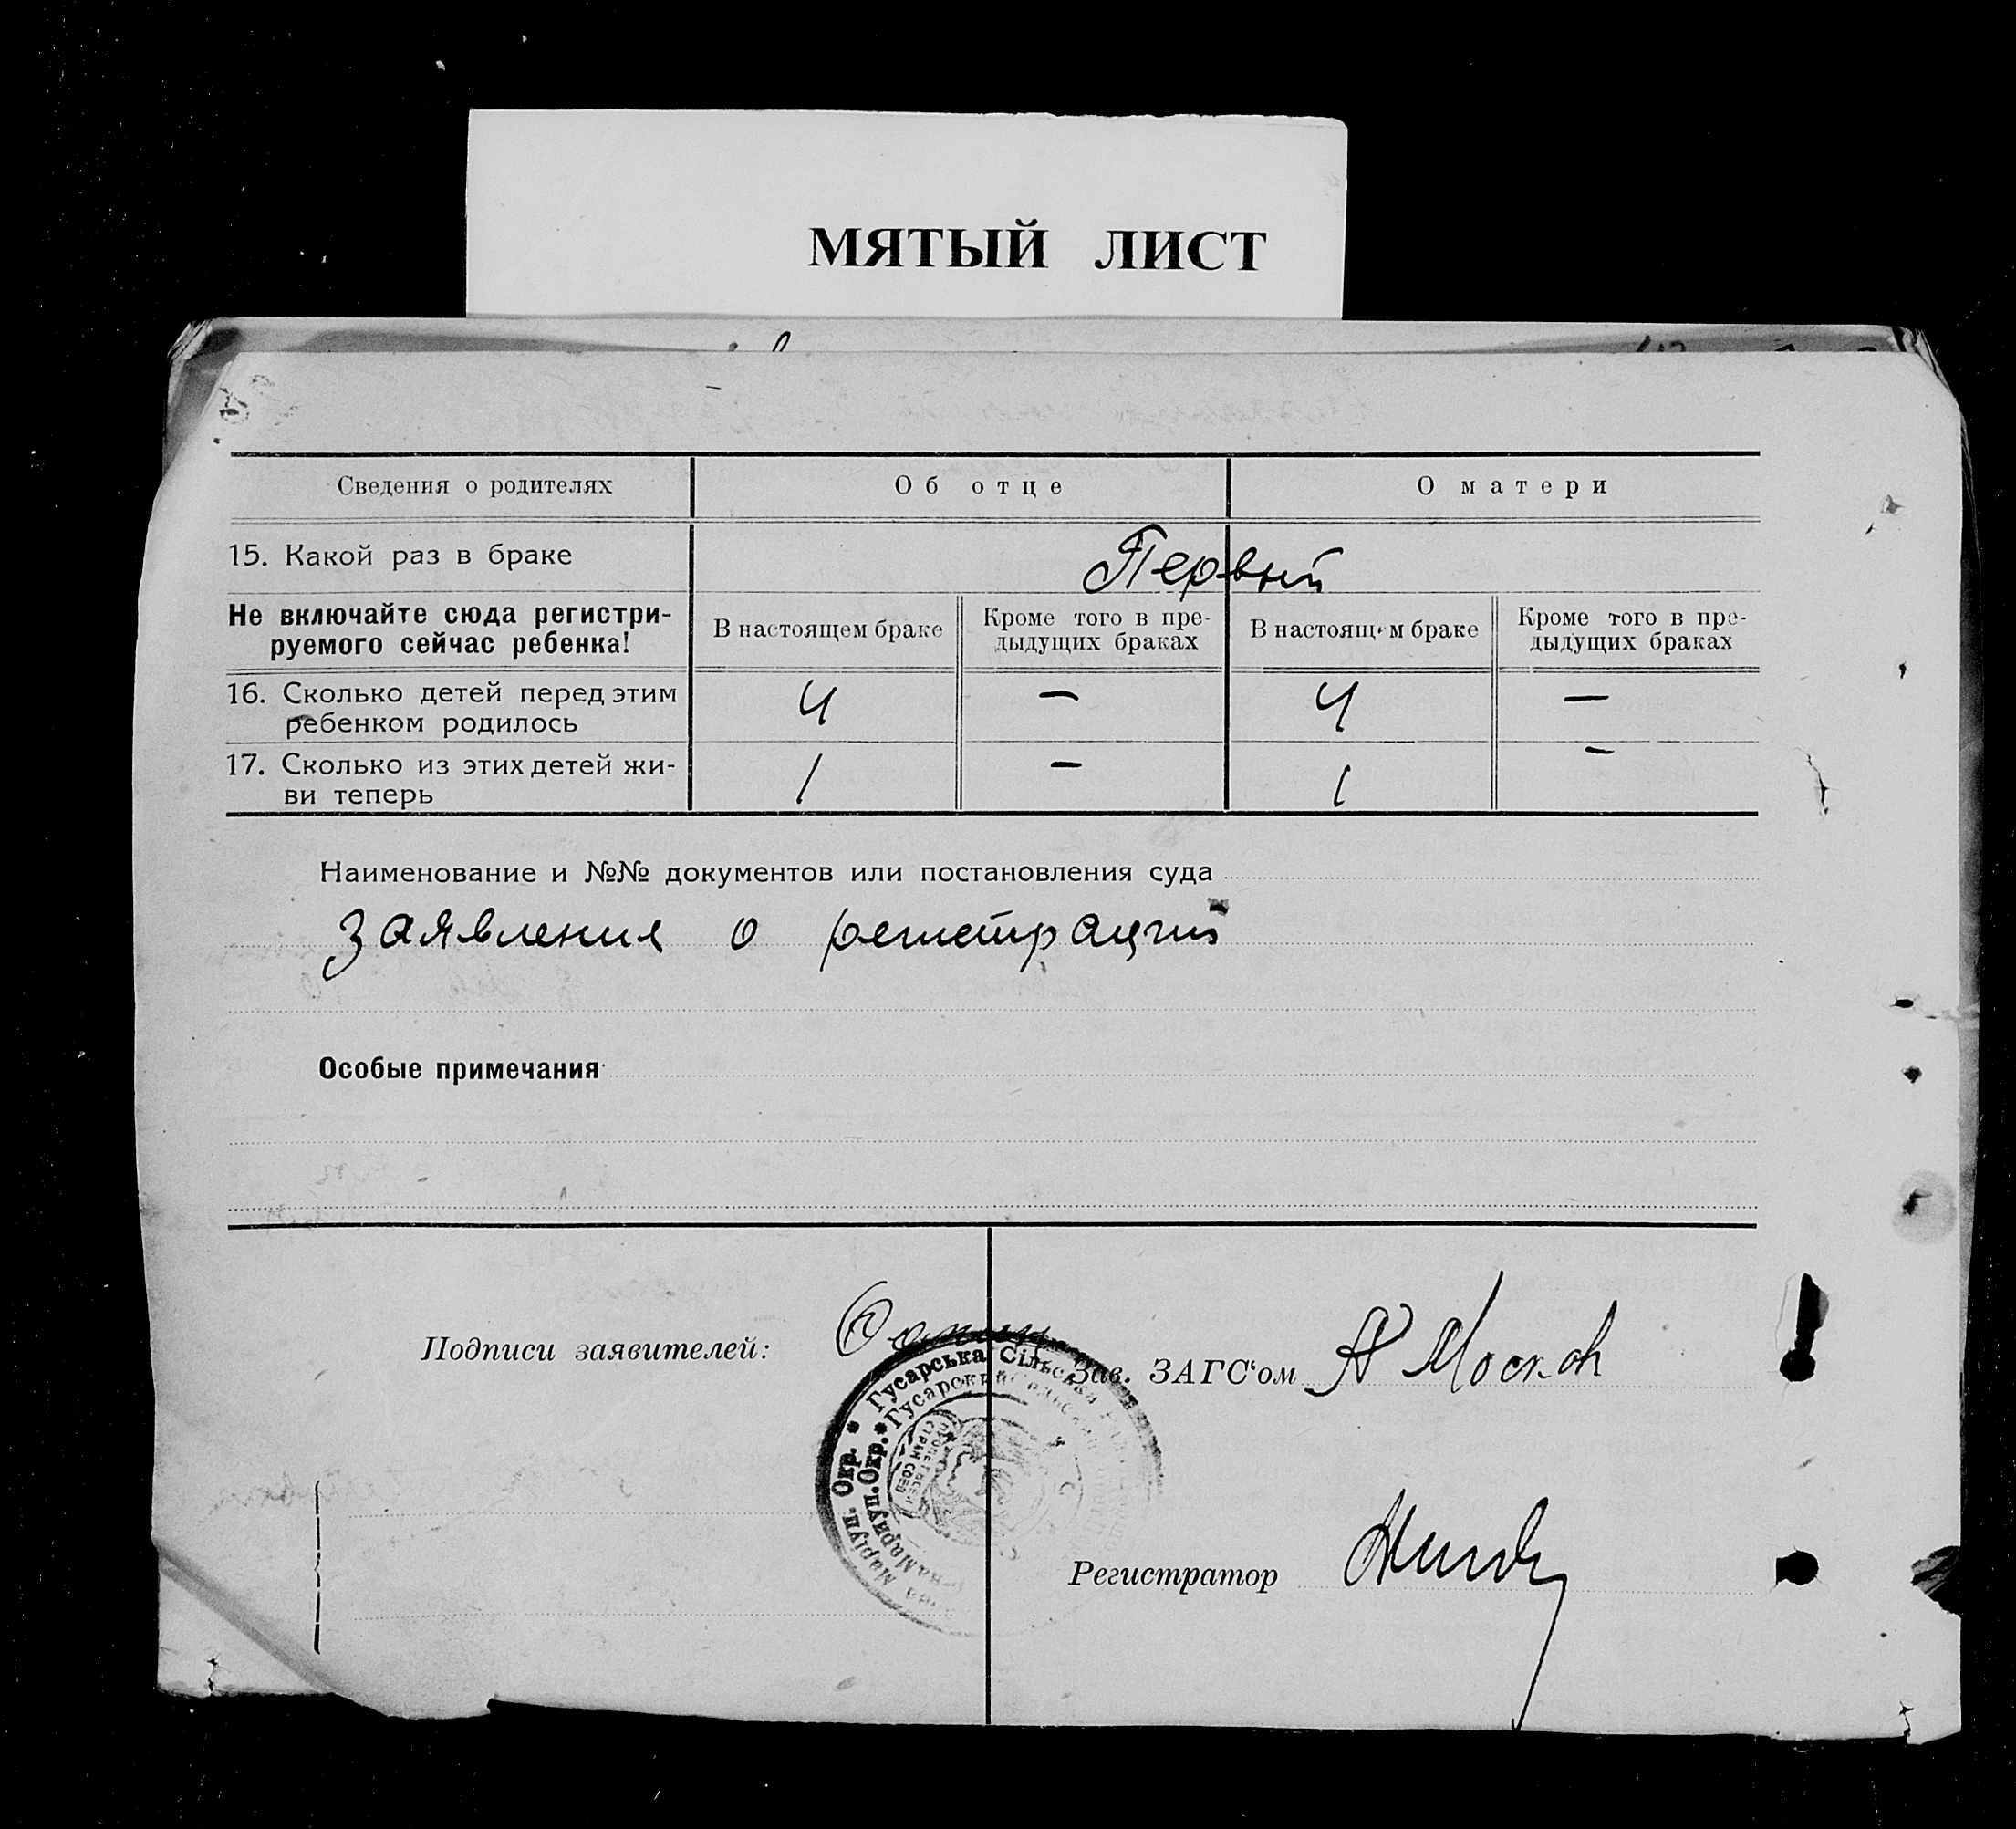 МЯТЫЙ ЛИСТ
Сведения о родителях
Об отце
О матери
15. Какой раз в браке
Первый
Не включайте сюда регистри-
руемого сейчас ребенка!
В настоящем браке
Кроме того в пре-
дыдущих браках
В настоящем браке
Кроме того в пре-
дыдущих браках
16. Сколько детей перед этим
ребенком родилось
4 — 4 —
17. Сколько из этих детей жи-
ви теперь
1 — 1 —
Наименование и №№ документов или постановления суда
Заявления о регистраций
Особые примечания
Подписи заявителей:
Зав. ЗАГС‘ом
Гусарська Сільська
Маріуп. Окр. *
Гусарский
Мариуп. Окр. *
Регистратор